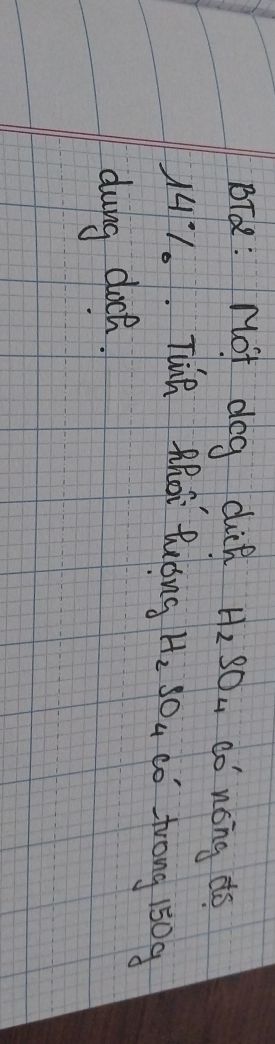 BT2: Một dcg dịch H₂SO₄ có nồng độ
14%. Tính khối lượng H₂SO₄ có trong 150g
dung dịch.